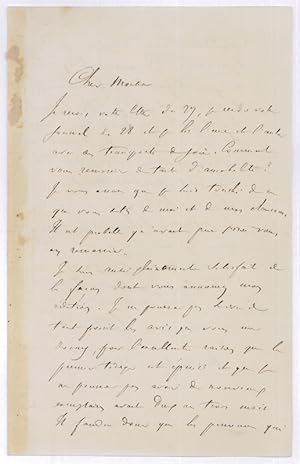 Cher Monsieur
Je reçois votre lettre du 27, je reçois votre
journal du 28 et je lis l'une et l'autre
avec un transport de joie. Comment
vous remercier de tant d'amabilité ?
Je vous avoue que je suis touché de ce
que vous dites de moi et de mes
Il est probable qu'avant peu j'irai vous
en remercier.
Je suis très pleinement satisfait de
la façon dont vous annoncez mes
éditions. Je ne
tout point les avis que vous me
donnez, pour l'excellente raison que le
premier tirage est épuisé et que je
ne pourrai pas avoir de nouveaux
exemplaires avant deux ou trois mois
Il faudra donc que les personnes qui